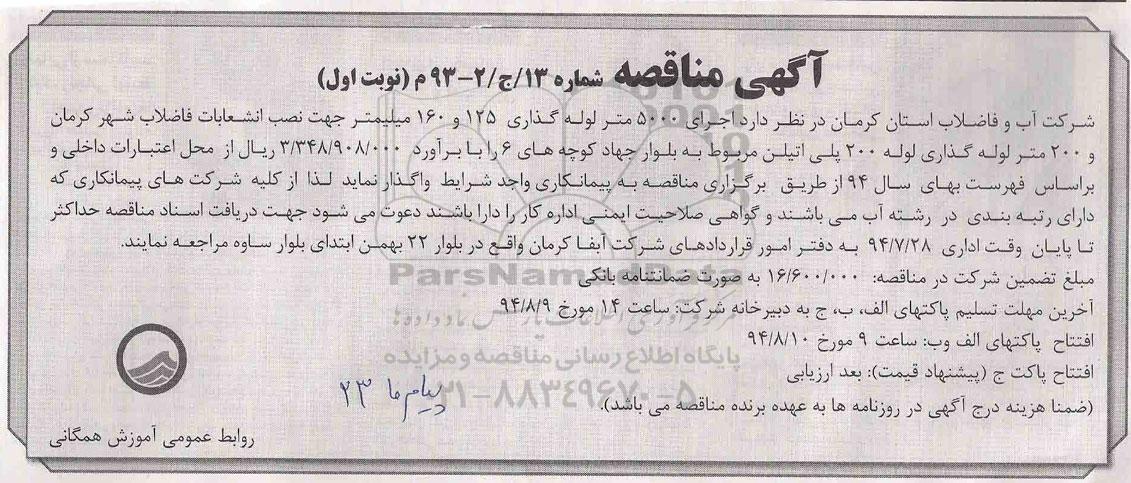 آگهی مناقصه شماره ۱۳/ج/۲-۹۳ م (نوبت اول)
شرکت آب و فاضلاب استان کرمان در نظر دارد اجرای ۵۰۰۰ متر لوله گذاری ۱۲۵ و ۱۶۰ میلیمتر جهت نصب انشعابات فاضلاب شهر کرمان
و ۲۰۰ متر لوله گذاری لوله ۲۰۰ پلی اتیلن مربوط به بلوار جهاد کوچه های ۶ را با برآورد ۳/۳۴۸/۹۰۸/۰۰۰ ریال از محل اعتبارات داخلی و
براساس فهرست بهای سال ۹۴ از طریق برگزاری مناقصه به پیمانکاری واجد شرایط واگذار نماید لذا از کلیه شرکت های پیمانکاری که
دارای رتبه بندی در رشته آب می باشند و گواهی صلاحیت ایمنی اداره کار را دارا باشند دعوت می شود جهت دریافت اسناد مناقصه حداکثر
تا پایان وقت اداری ۹۴/۷/۲۸ به دفتر امور قراردادهای شرکت آبفا کرمان واقع در بلوار ۲۲ بهمن ابتدای بلوار ساوه مراجعه نمایند.
مبلغ تضمین شرکت در مناقصه: ۱۶/۶۰۰/۰۰۰ به صورت ضمانتنامه بانکی
ParsNamadData
آخرین مهلت تسلیم پاکتهای الف، ب، ج به دبیرخانه شرکت: ساعت ۱۴ مورخ ۹۴/۸/۹
افتتاح پاکتهای الف وب: ساعت ۹ مورخ ۹۴/۸/۱۰
پایگاه اطلاع رسانی مناقصه و مزایده
افتتاح پاکت ج (پیشنهاد قیمت): بعد ارزیابی
۰۲۱-۸۸۳۴۹۶۷۰-۵
پیام ما ۲۳
(ضمنا هزینه درج آگهی در روزنامه ها به عهده برنده مناقصه می باشد).
روابط عمومی آموزش همگانی